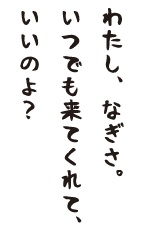 わたし、なぎさ。
いつでも来てくれて、
いいのよ？